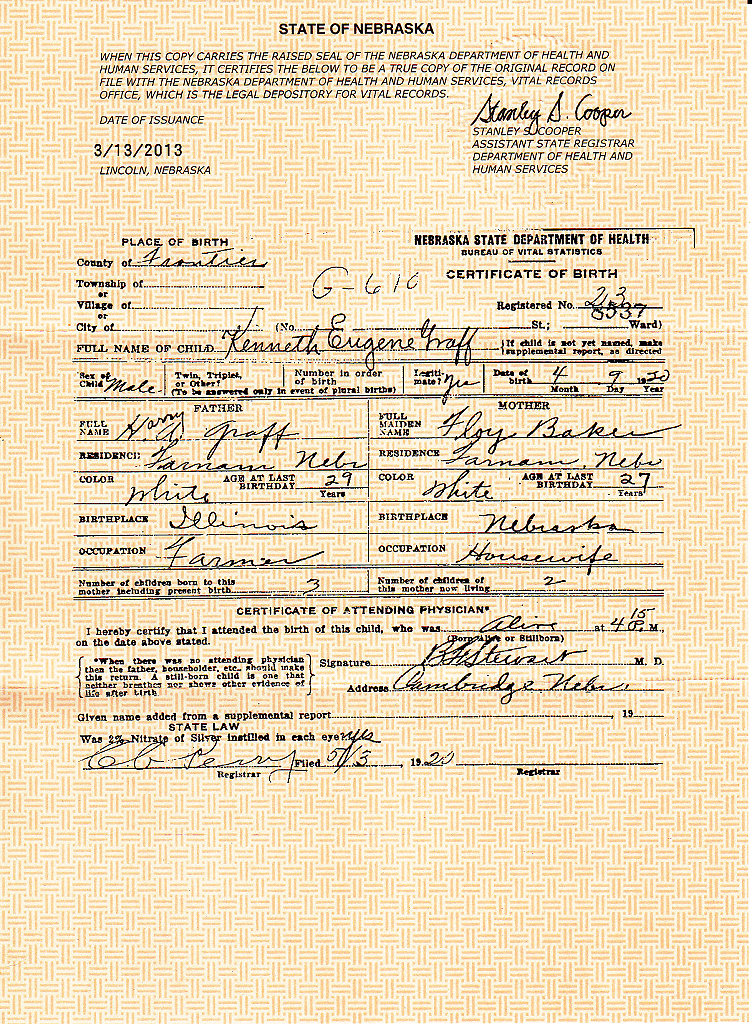 STATE OF NEBRASKA
WHEN THIS COPY CARRIES THE RAISED SEAL OF THE NEBRASKA DEPARTMENT OF HEALTH AND
HUMAN SERVICES, IT CERTIFIES THE BELOW TO BE A TRUE COPY OF THE ORIGINAL RECORD ON
FILE WITH THE NEBRASKA DEPARTMENT OF HEALTH AND HUMAN SERVICES, VITAL RECORDS
OFFICE, WHICH IS THE LEGAL DEPOSITORY FOR VITAL RECORDS.
DATE OF ISSUANCE
3/13/2013
LINCOLN, NEBRASKA
Stanley S. Cooper
STANLEY S. COOPER
ASSISTANT STATE REGISTRAR
DEPARTMENT OF HEALTH AND
HUMAN SERVICES
PLACE OF BIRTH
County of Frontier
Township of
or
Village of
or
City of
G-610
NEBRASKA STATE DEPARTMENT OF HEALTH
BUREAU OF VITAL STATISTICS
CERTIFICATE OF BIRTH
Registered No. 23
8537
(No. St.; Ward)
FULL NAME OF CHILD Kenneth Eugene Graff
{If child is not yet named, make
supplemental report, as directed
Sex of Child Male
Twin, Triplet, or Other?
Number in order of birth
(To be answered only in event of plural births)
Legitimate? Yes
Date of birth 4 9 1920
Month Day Year
FATHER
FULL NAME Harry A Graff
RESIDENCE Farnam Nebr
COLOR White
AGE AT LAST BIRTHDAY 29
Years
BIRTHPLACE Illinois
OCCUPATION Farmer
MOTHER
FULL MAIDEN NAME Floy Baker
RESIDENCE Farnam, Nebr
COLOR White
AGE AT LAST BIRTHDAY 27
Years
BIRTHPLACE Nebraska
OCCUPATION Housewife
Number of children born to this
mother including present birth 3
Number of children of
this mother now living 2
CERTIFICATE OF ATTENDING PHYSICIAN*
I hereby certify that I attended the birth of this child, who was Alive at 4 15 P. M.,
(Born Alive or Stillborn)
on the date above stated.
{*When there was no attending physician
then the father, householder, etc., should make
this return. A still-born child is one that
neither breathes nor shows other evidence of
life after birth}
Signature Stewart M. D.
Address Cambridge Nebr.
Given name added from a supplemental report , 19
STATE LAW
Was 2% Nitrate of Silver instilled in each eye? yes
Filed 5/13, 1920
Registrar
Registrar